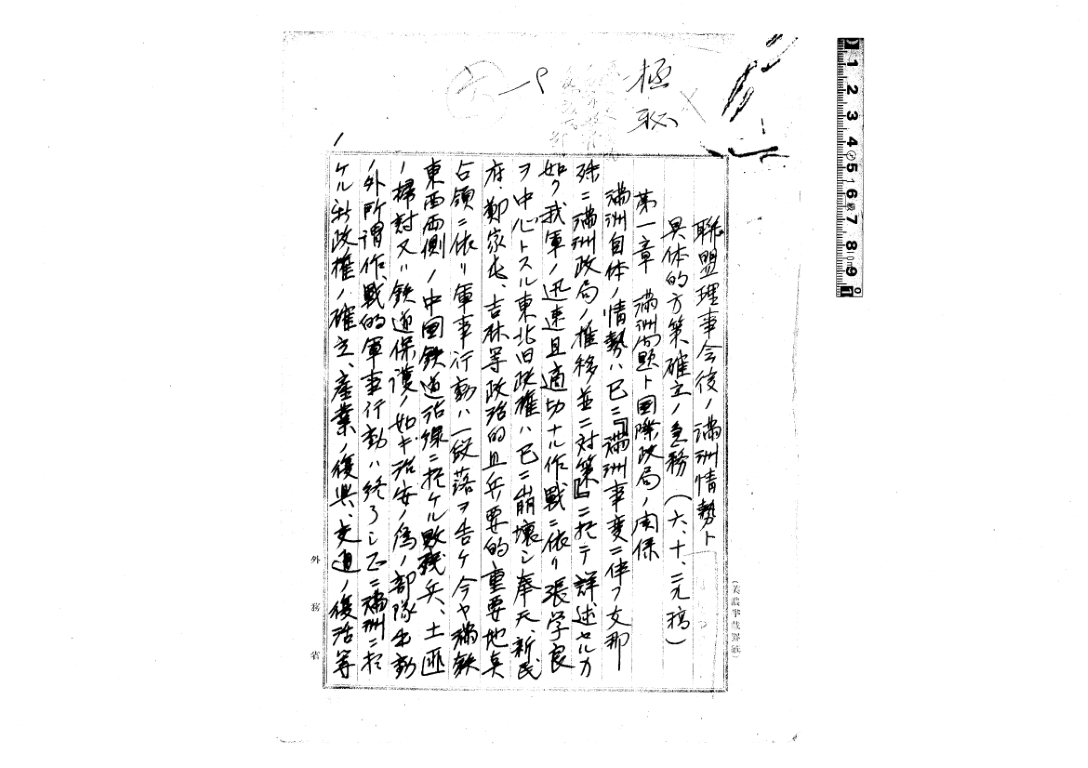 極
秘
聯盟理事会後ノ満洲情勢ト
具体的方策確立ノ急務(六、十、二元稿)
第一章 満洲問題ト国際政局ノ関係
満洲自体ノ情勢ハ已ニ『満洲事変ニ伴フ支那
殊ニ満洲政局ノ推移並ニ対策』ニ於テ詳述セルカ
如ク我軍ノ迅速且適切ナル作戦ニ依リ張学良
ヲ中心トスル東北旧政権ハ已ニ崩壊シ奉天、新民
府、鄭家屯、吉林等政治的且兵要的重要地点
占領ニ依リ軍事行動ハ一段落ヲ告ケ今ヤ満鉄
東西両側ノ中国鉄道沿線ニ於ケル敗残兵、土匪
ノ掃討又ハ鉄道保護ノ如キ治安ノ為ノ部隊出動
ノ外所謂作戦的軍事行動ハ終了シ正ニ満洲ニ於
ケル新政権ノ確立、産業ノ復興、交通ノ復活等
外務省
1 2 3 4 5 6 7 8 9